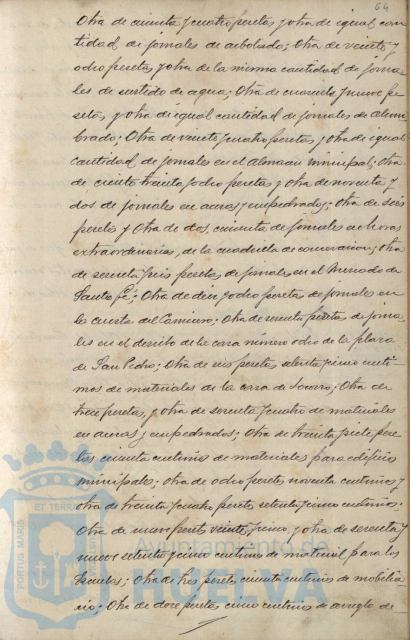 64
Otra de cincuenta y cuatro pesetas y otra de igual can-
tidad de jornales de arbolado; Otra de veinte y
ocho pesetas y otra de la misma cantidad de jorna-
les de surtido de agua; Otra de cuarenta y nueve pe-
setas, y otra de igual cantidad de jornales de alum-
brado; Otra de veinte y cuatro pesetas, y otra de igual
cantidad de jornales en el Almacen municipal; Otra
de ciento treinta y ocho pesetas y otra de noventa y
dos de jornales en aceras y empedrados; Otra de seis
pesetas y otra de dos, cincuenta de jornales en horas
extraordinarias, de la cuadrilla de conservacion; Otra
de sesenta y seis pesetas de jornales en el Mercado de
Santa Fé; Otra de diez y ocho pesetas de jornales en
la cuesta del Carnicero; Otra de cuenta pesetas de jorna-
les en el derribo de la casa número ocho de la plaza
de San Pedro; Otra de seis pesetas setenta y cinco centi-
mos de materiales de la casa de Socorro; Otra de
trece pesetas, y otra de sesenta y cuatro de materiales
en aceras y empedrados; Otra de treinta y siete pese-
tas cincuenta centimos de materiales para edificios
municipales; Otra de ocho pesetas noventa centimos y
otra de treinta y cuatro pesetas setenta y cinco centimos;
Otra de nueve pesetas veinte y cinco, y otra de sesenta y
nueve setenta y cinco centimos de material para las
Escuelas; Otra de tres pesetas cincuenta centimos de mobilia-
rio; Otra de doce pesetas cinco centimos de arreglo de
PORTUS MARIS
ET TERRAE
Ayuntamiento de
HUELVA